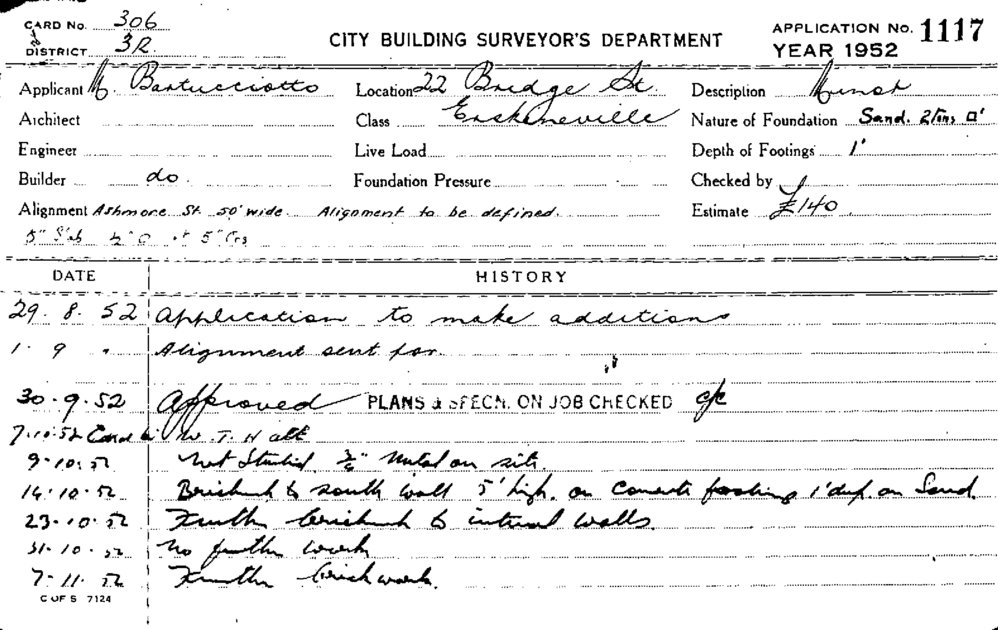 CARD No. 306
DISTRICT 3R.
CITY BUILDING SURVEYOR'S DEPARTMENT
APPLICATION No. 1117
YEAR 1952
Applicant Bartucciotto Location 22 Bridge St. Description
Architect Class Erskineville Nature of Foundation Sand. 2 Tons □'
Engineer Live Load Depth of Footings 1'
Builder do. Foundation Pressure Checked by
Alignment Ashmore St 50' wide. Alignment to be defined. Estimate £140
5" Slab ½" @ 5" Crs
DATE HISTORY
29.8.52 Application to make additions
1.9 " Alignment sent for.
30.9.52 Approved PLANS & SPECN. ON JOB CHECKED
7.10.52 Card to W. T. Hatt
9.10.52 Not Started. ¾" Metal on site.
14.10.52 Brickwk to south wall 5' high. on Concrete footing 1' deep on Sand
23.10.52 Further brickwk to internal walls.
31.10.52 No further work
7.11.52 Further brickwork.
C OF S 7124